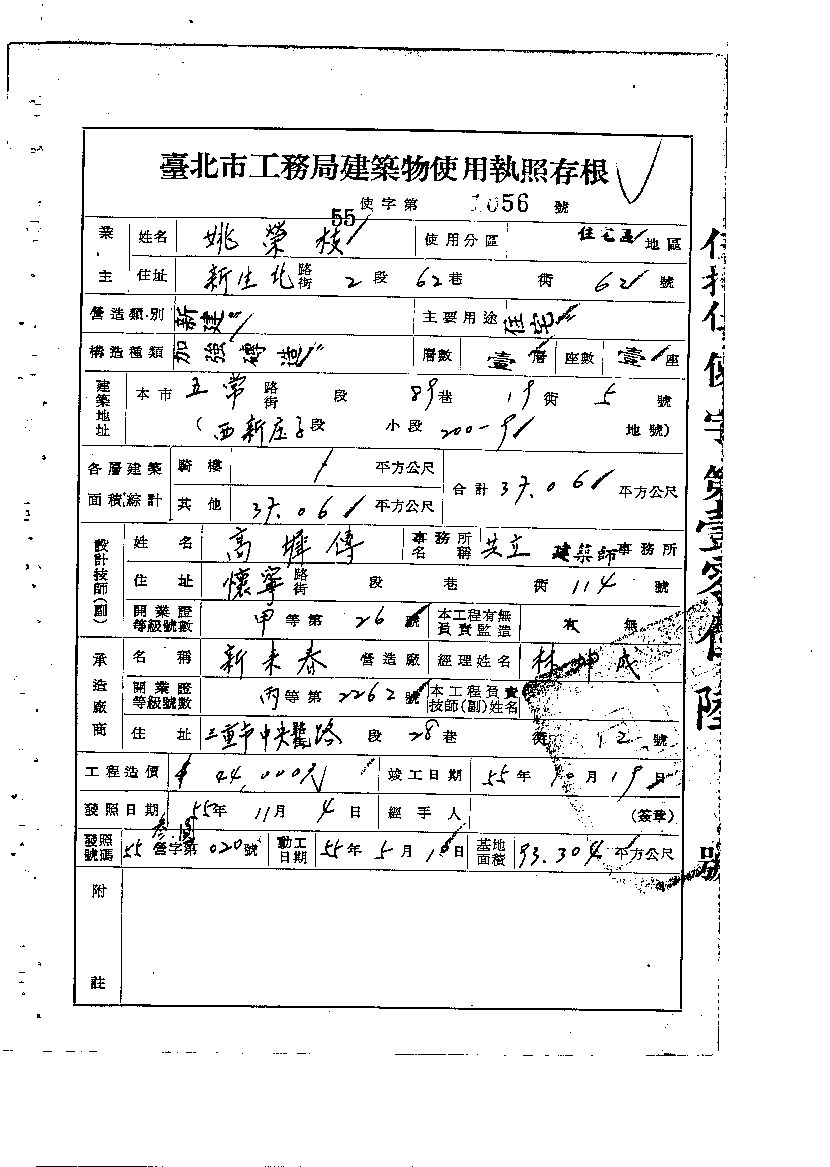 臺北市工務局建築物使用執照存根
55 使字第 1056 號
業主 姓名 姚榮枝 使用分區 住宅區 地區
住址 新生北 路街 2 段 62 巷 街 62 號
營造類別 新建 主要用途 住宅
構造種類 加強磚造 層數 壹層 座數 壹座
建築地址 本市 五常 路街 段 89 巷 19 街 5 號
(西新庄子段 小段 200-9 地號)
各層建築面積綜計 騎樓 / 平方公尺 合計 37.06 平方公尺
其他 37.06 平方公尺
設計技師(副) 姓名 高 傳 事務所名稱 共立 建築師事務所
住址 懷寧 路街 段 巷 街 114 號
開業證等級號數 甲等第 26 號 本工程有無負責監造 有 無
承造廠商 名稱 新來春 營造廠 經理姓名 林坤成
開業證等級號數 丙等第 2262 號 本工程負責技師(副)姓名
住址 三重市中央 路 段 28 巷 街 12 號
工程造價 44,000元 竣工日期 55年10月19日
發照日期 55年11月4日 經手人 (簽章)
發照號碼 55 營字第 020 號 動工日期 55年5月16日 基地面積 93.304 平方公尺
附註
使字第壹零伍陸號